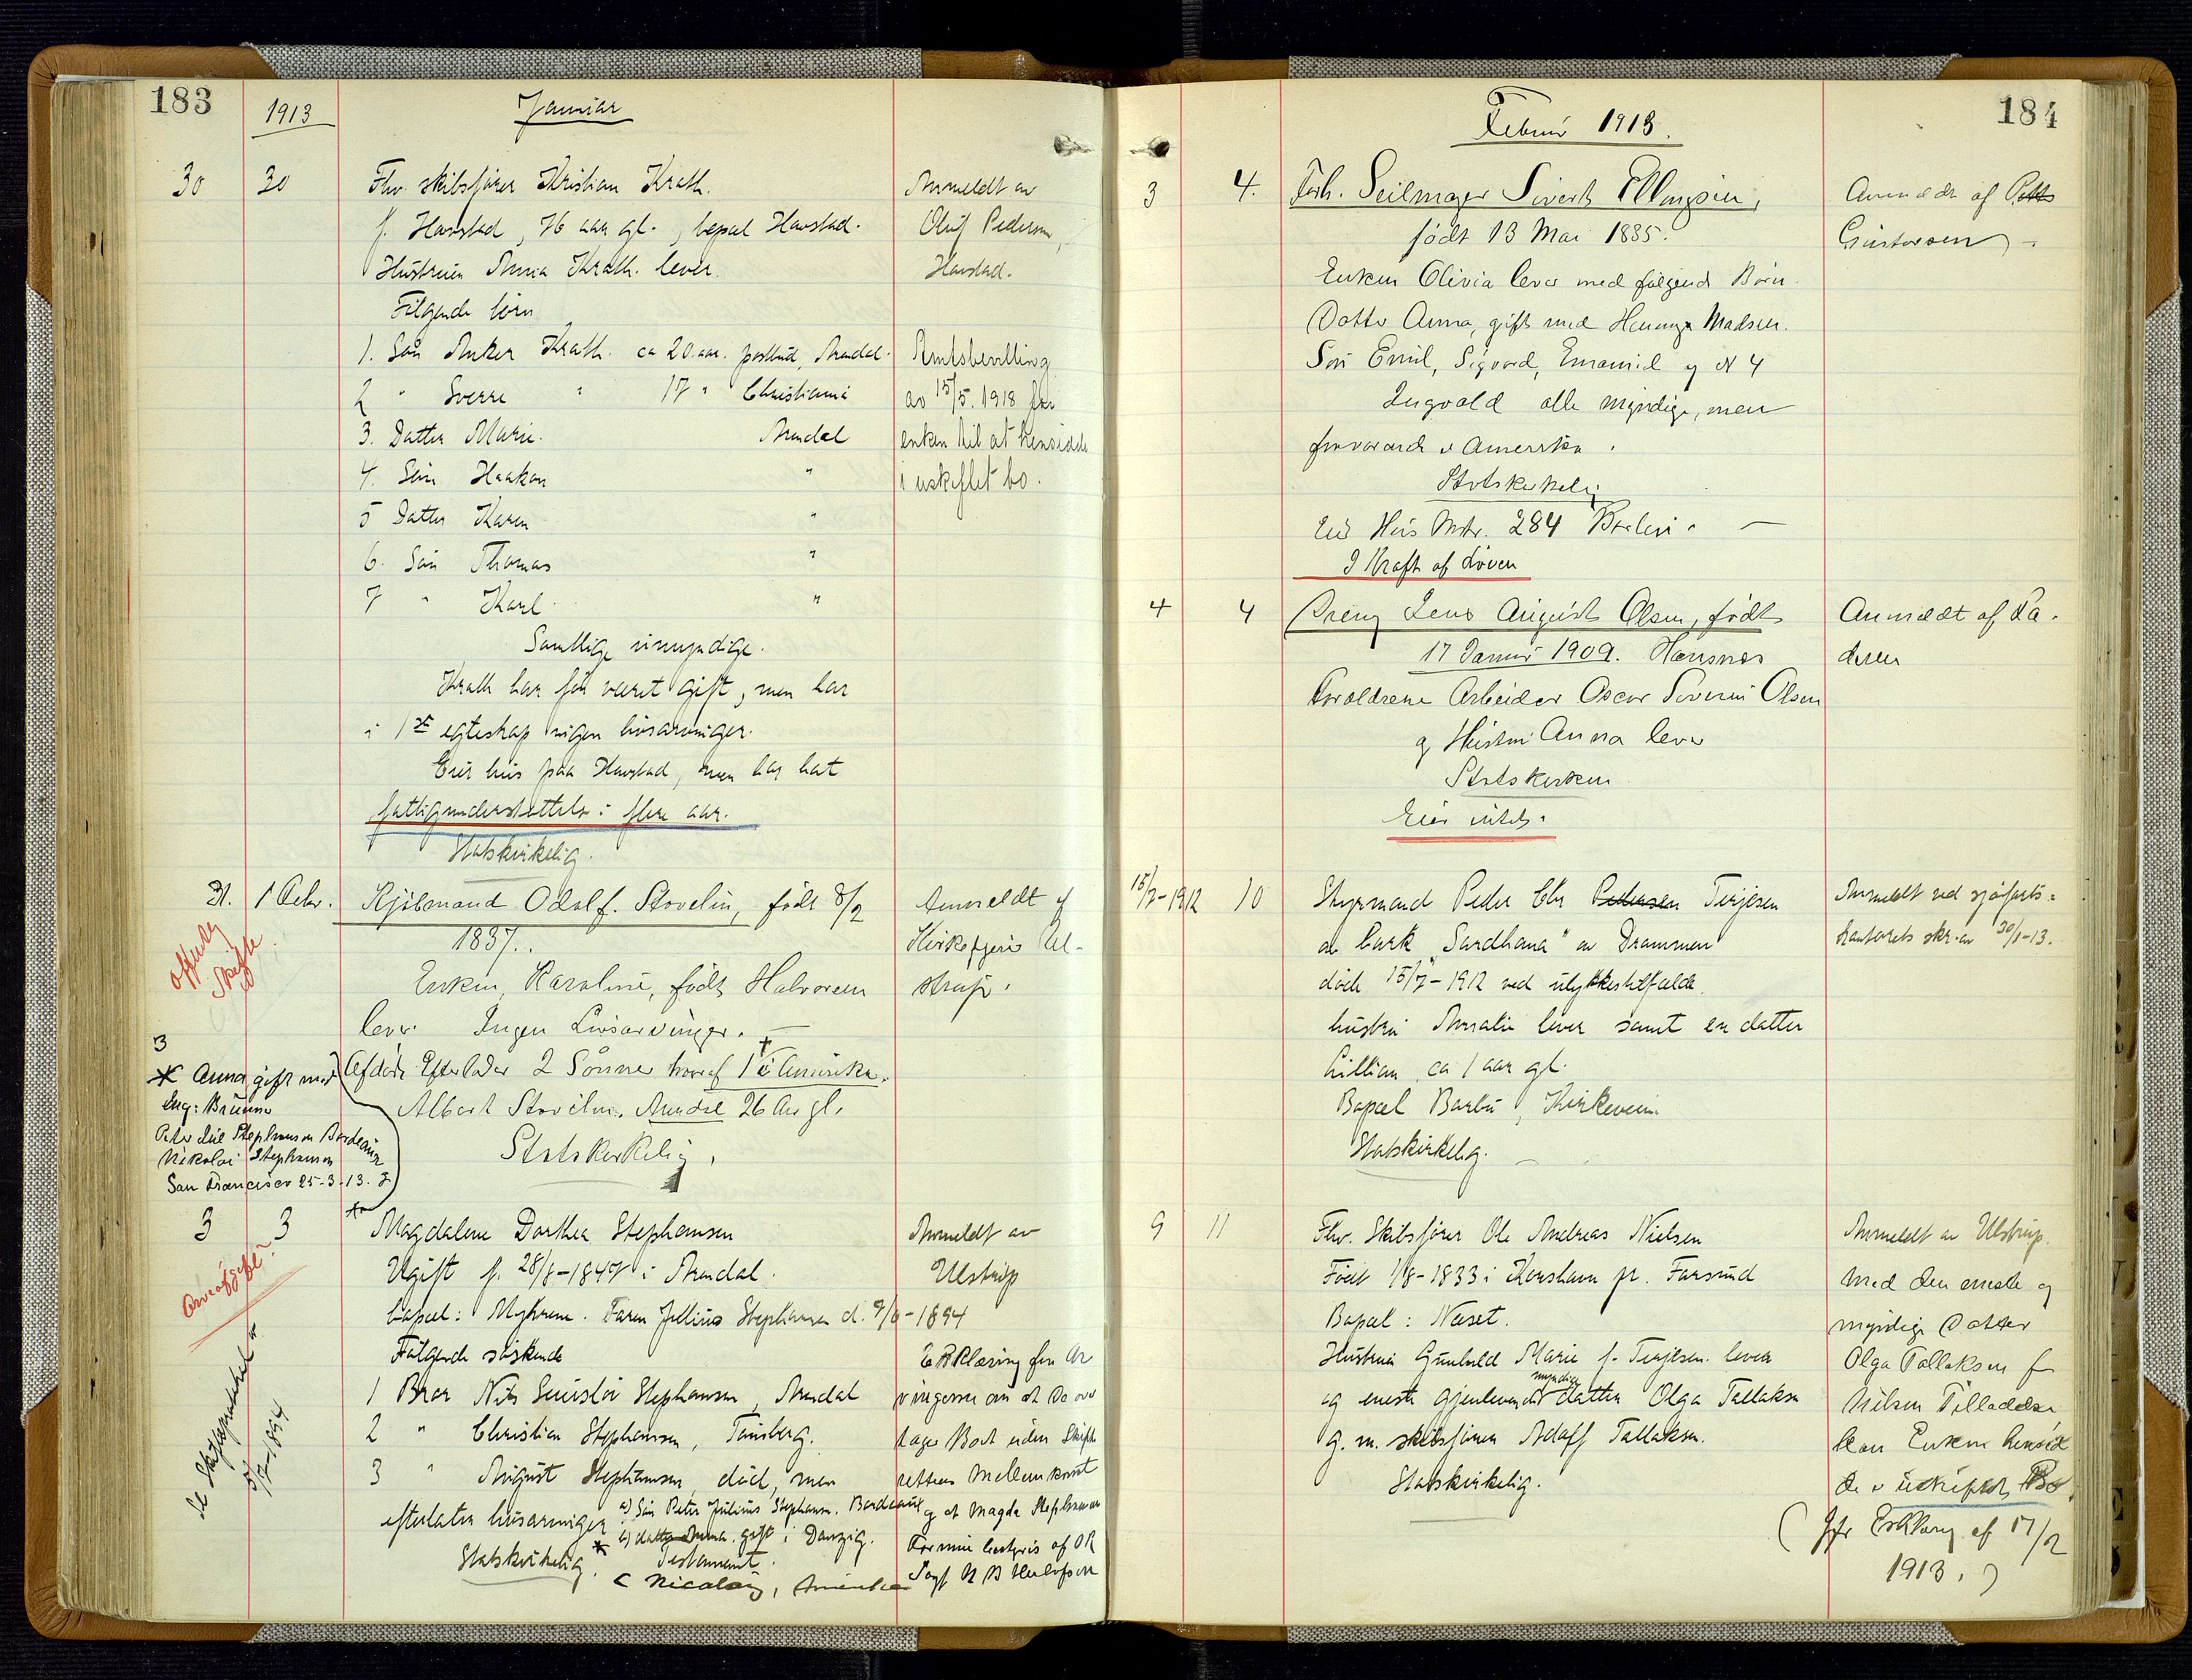 183
1913
Januar
30 30 Fhv. skibsfører Kristian Krath.
f. Havstad, 76 aar gl., bopæl Havstad.
Hustruen Anna Krath lever.
Følgende børn
1. Søn Anker Krath. ca 20 aar. postbud, Arendal.
2 " Sverre " 17 " Christiania
3. Datter Marie. Arendal
4. Søn Haakon "
5 Datter Karen "
6. Søn Thomas "
7 " Karl "
Samtlige umyndige.
Krath har før været gift, men har
i 1ste egteskap ingen livsarvinger.
Eier hus paa Havstad, men har hat
fattigunderstøttelse i flere aar.
Statskirkelig.
Anmeldt av
Oluf Pedersen,
Havstad.
Amtsbevilling
av 15/5. 1918 for
enken til at hensidde
i uskiftet bo.
31. 1 Febr. Odolf. Stovelin, født 8/2
1837.
Enken, Karoline, født Halvorsen
lever. Ingen Livsarvinger. —
Afdøde Efterlader 2 Sønner hvoraf 1 i Amerika.
Albert Stovelin. Arendal 26 Aar gl.
Statskirkelig.
Anmeldt af
Kirketjener Ul-
strup.
offentlig
Skifte
3
* Anna gift med
Ing: Brünno
Peter Juil Stephansen Bordeaux
Nikolai Stephansen
San Francisco 25-3-13.
3 3 Magdalene Dorthea Stephansen
Ugift f. 28/8-1847 i Arendal.
bopæl: Myhrene. Faren Jullius Stephansen d. 9/6-1894
Følgende søskende
1 Bror Nils Stephansen, Arendal
2 " Christian Stephansen, Tønsberg.
3 " August Stephansen, død, men
efterlater livsarvinger a) Søn Peter Julius Stephansen. Bordeaux
b) datter Anna gift i Danzig.
Statskirkelig. * Testament.
c Nicolay, Amerika
Anmeldt av
Ulstrup
Erklæring fra Ar
vingerne om at de over
tager Boet uden Skifte
rettens Mellemkomst
og at Magda Stephansen
5/7-1894
184
Februar 1913.
3 4. Forh. Seilmager Sivert Ellingsen,
født 13 Mai 1835.
Enken Olivia lever med følgende Børn.
Datter Anna, gift med Madsen.
Søn Emil, Sigvard, Emanuel og N 4
Ingvald alle myndige, men
fraværende i Amerika.
Statskirkelig
Eier Hus Mtr. 284 Barbu. —
I Kraft af Loven
Anmeldt af Peder
Gustavsen, -
4 4 Dreng Jens August Olsen, født
17 Januar 1909.
Forældrene Arbeider Oscar Severin Olsen
og Hustru Anna lever
Statskirken
Eier intet.
Anmeldt af Fa-
deren
15/7-1912 10 Styrmand Peder Chr Pedersen Terjesen
av bark "Sardhana" av Drammen
døde 15/7-1912 ved ulykkestilfælde.
hustru Amalie lever samt en datter
Lillian ca 1 aar gl.
Bopæl Barbu, Kirkeveien.
Statskirkelig. —
Anmeldt ved sjøfarts-
kontorets skr. av 30/1-13.
9 11 Fhv. Skibsfører Ole Andreas Nielsen
Født 1/8-1833 i Korshavn pr. Farsund
Bopæl: Næset.
Hustruen Gunhild Marie f. Terjesen lever
og eneste gjenlevende myndige datter Olga Tallaksen
g. m. skibsfører Adolf Tallaksen.
Statskirkelig.
Anmeldt av Ulstrup.
Med den eneste og
myndige Datter
Olga Tallaksen f
Nilsen Tilladelse
kan Enken hensid
de i uskiftet Bo.
(Jfr Erklæring af 17/2
1913.)